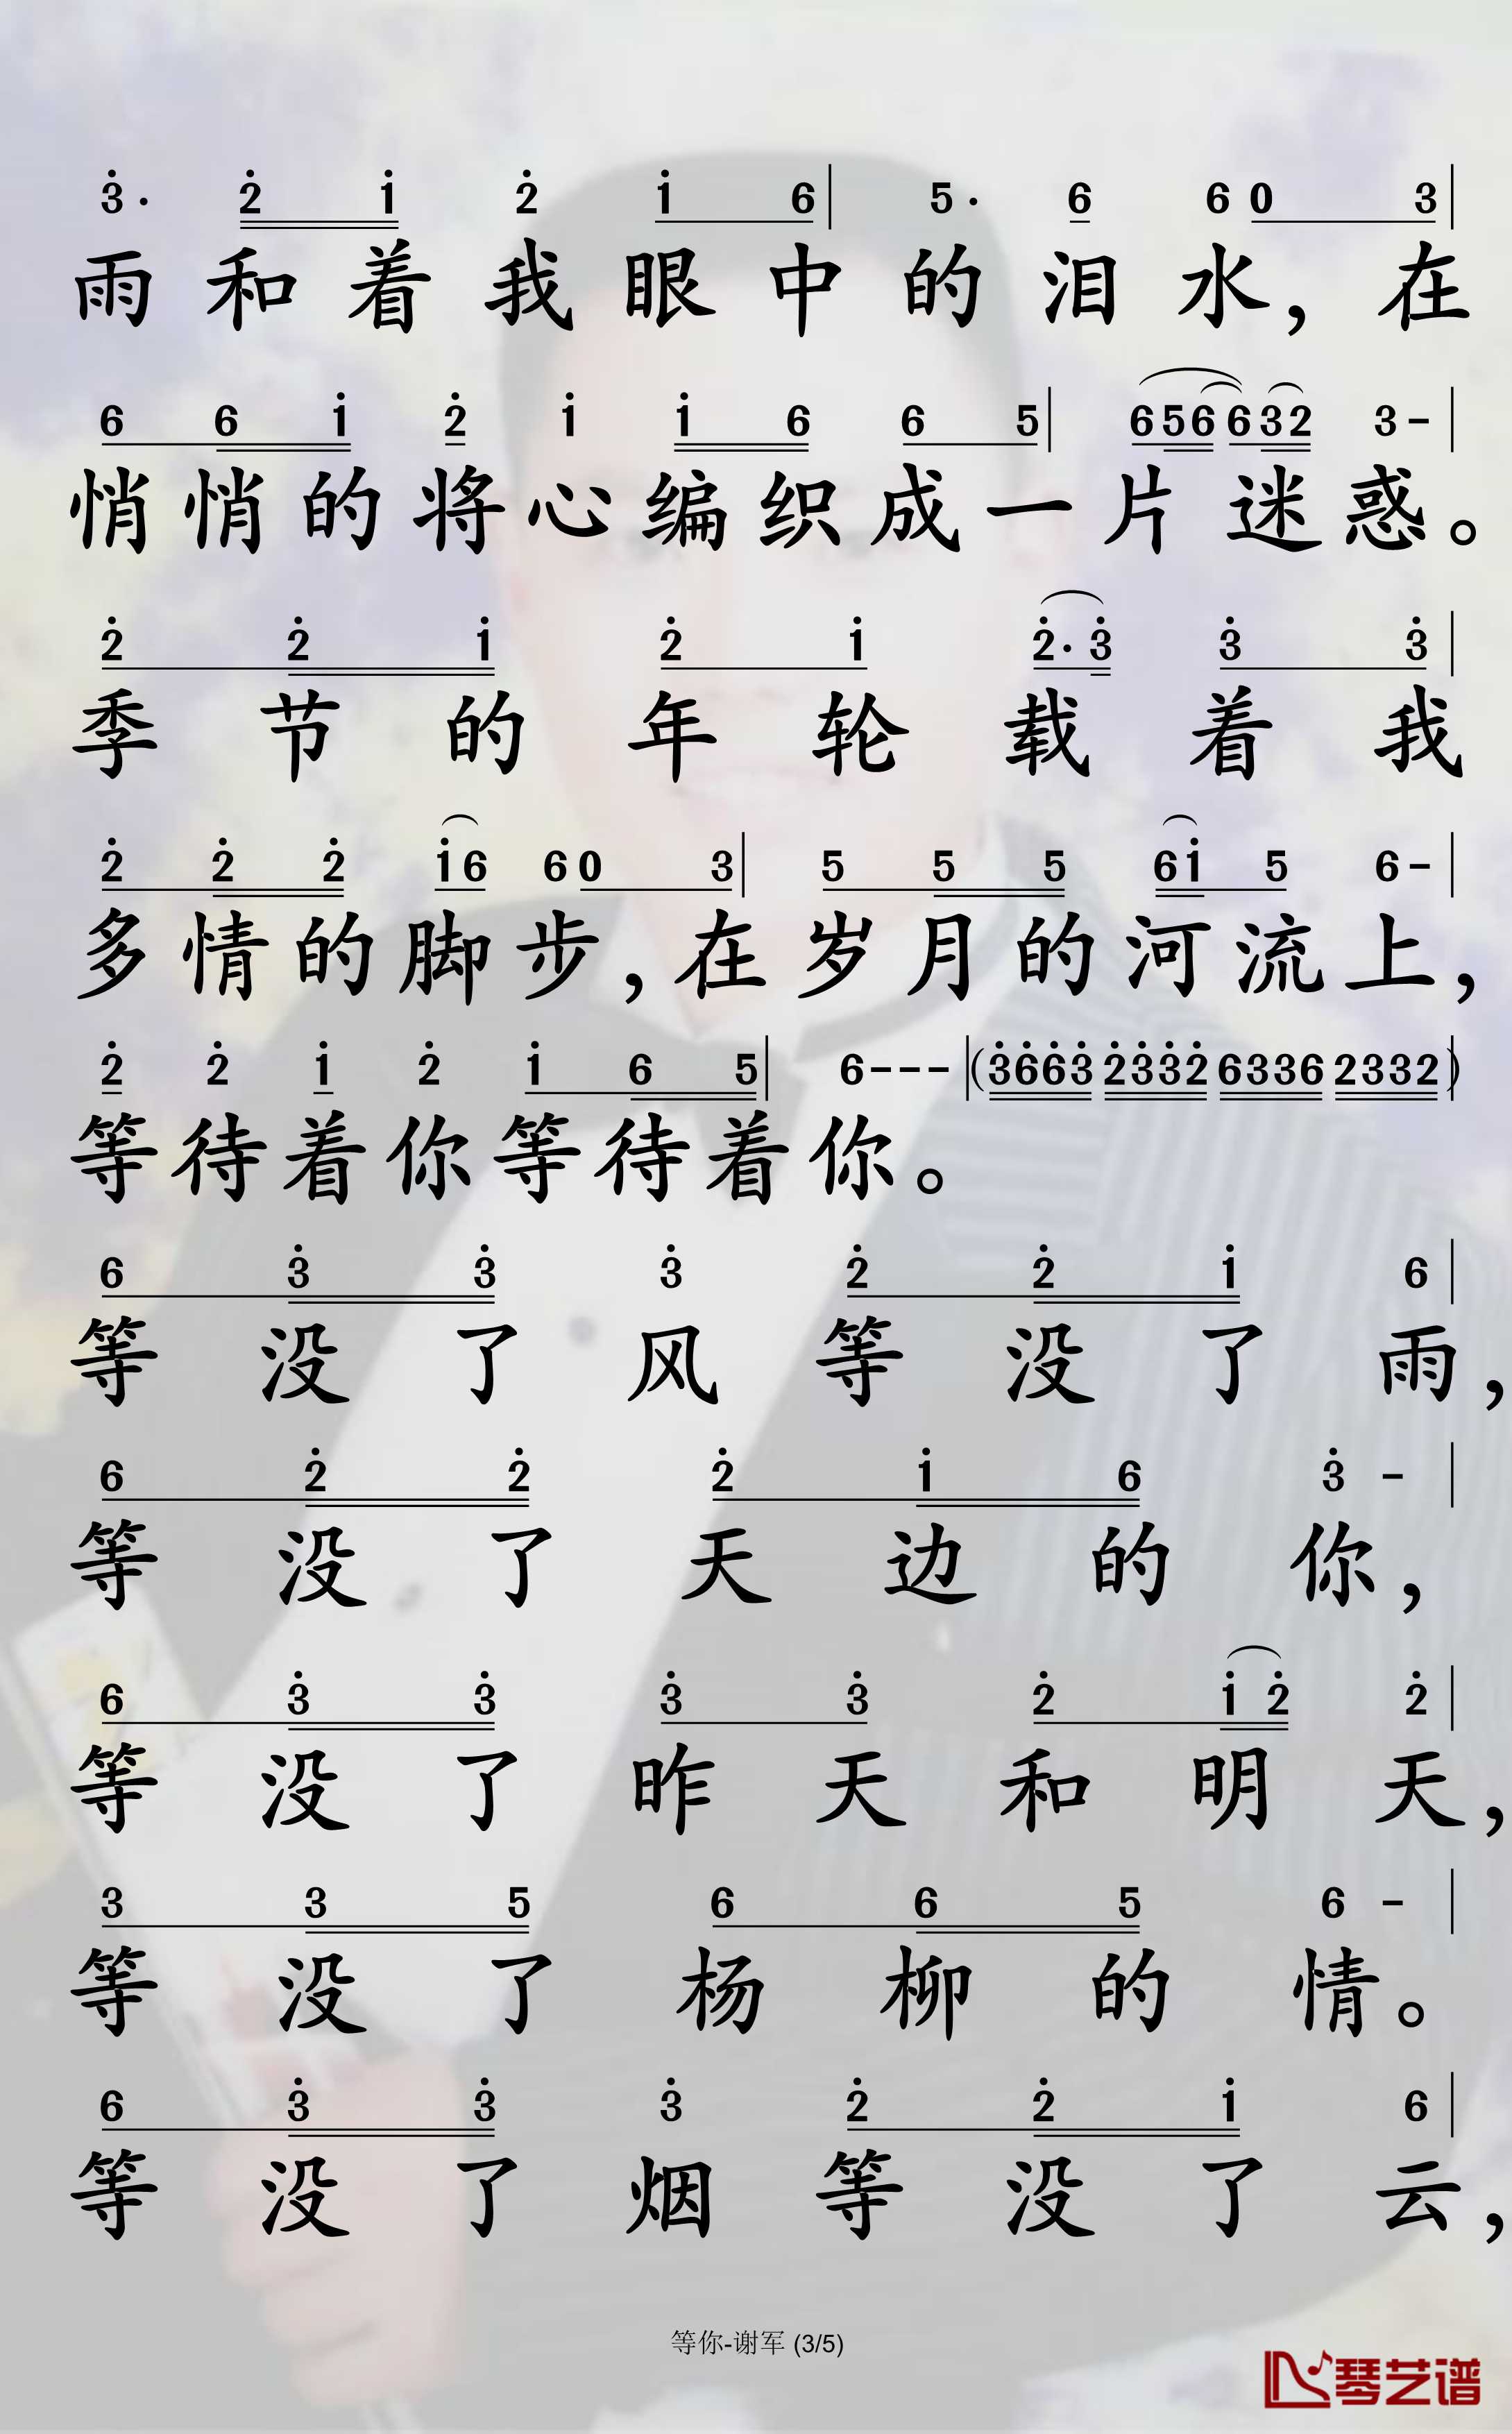 3̇· 2̇ 1̇ 2̇ 1̇ 6 | 5· 6 6 0 3 |
雨和着我眼中的泪水，在
6 6 1̇ 2̇ 1̇ 1̇ 6 6 5 | 6 5 6 6 3 2 3 - |
悄悄的将心编织成一片迷惑。
2̇ 2̇ 1̇ 2̇ 1̇ 2̇· 3̇ 3̇ 3̇ |
季节的年轮载着我
2̇ 2̇ 2̇ 1̇ 6 6 0 3 | 5 5 5 6 1̇ 5 6 - |
多情的脚步，在岁月的河流上，
2̇ 2̇ 1̇ 2̇ 1̇ 6 5 | 6 - - - | (3̇ 6̇ 6̇ 3̇ 2̇ 3̇ 3̇ 2̇ 6 3 3 6 2 3 3 2) |
等待着你等待着你。
6 3̇ 3̇ 3̇ 2̇ 2̇ 1̇ 6 |
等没了风等没了雨，
6 2̇ 2̇ 2̇ 1̇ 6 3̇ - |
等没了天边的你，
6 3̇ 3̇ 3̇ 3̇ 2̇ 1̇ 2̇ 2̇ |
等没了昨天和明天，
3 3 5 6 6 5 6 - |
等没了杨柳的情。
6 3̇ 3̇ 3̇ 2̇ 2̇ 1̇ 6 |
等没了烟等没了云，
等你-谢军 (3/5)
琴艺谱